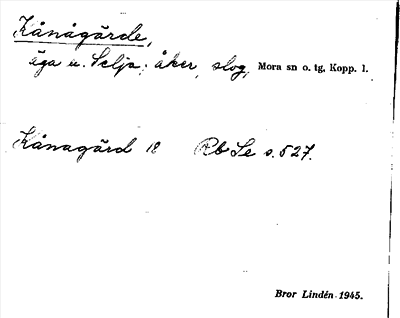 Kånågärde,
äga u. Selja; åker, slog, Mora sn o. tg, Kopp. l.
Kånagärd 18 Rb Se s. 527.
Bror Lindén 1945.